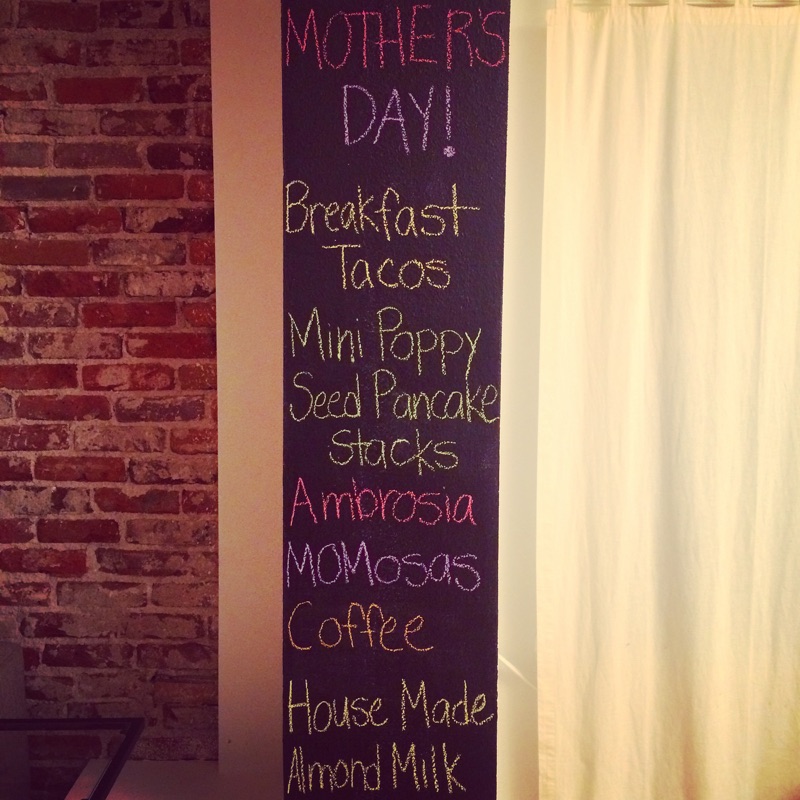 MOTHER'S
DAY!
Breakfast
Tacos
Mini Poppy
Seed Pancake
Stacks
Ambrosia
MOMosas
Coffee
House Made
Almond Milk